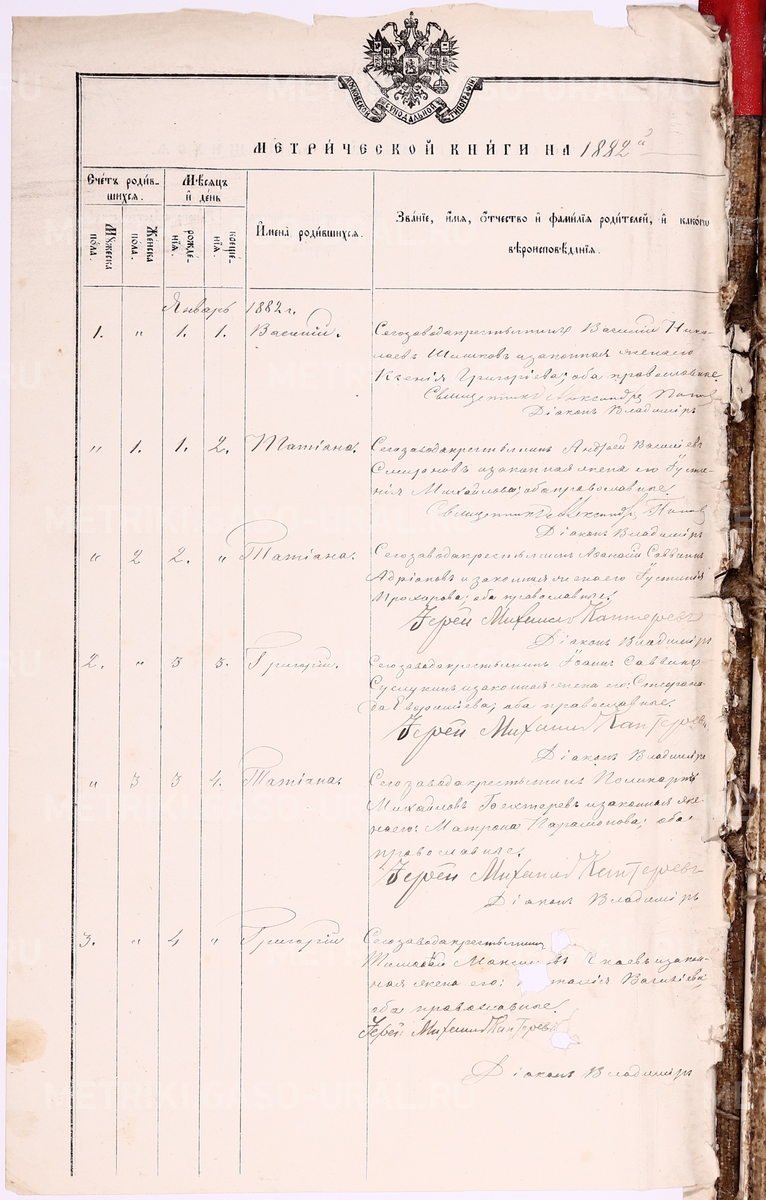 МОСКОВСКОЙ СѴНОДАЛЬНОЙ ТИПОГРАФІИ
МЕТРИ́ЧЕСКОЙ КНИ́ГИ НА 1882й
Сче́тъ роди́в-
шихсѧ.
Мѣ́сѧцъ
и҆ де́нь
Мꙋжеска
по́ла.
Же́нска
по́ла.
рожде́-
нїѧ.
креще́-
нїѧ.
И҆мена̀ роди́вшихсѧ.
Зва́нїе, и҆́мѧ, ѻ҆́тчество и҆ фами́лїѧ роди́телей, и҆ како́гѡ
вѣроисповѣ́данїѧ.
Январь 1882 г.
1. " 1. 1. Василий. Сегозаводакрестьянин Василий Нико-
лаевъ Шишковъ изаконная женаего
Ксенія Григоріева; оба православные.
Священникъ Александръ Попов
Діаконъ Владиміръ
" 1. 1. 2. Татіана. Сегозаводакрестьянинъ Андрей Василіевъ
Смирновъ изаконная жена его Іусти-
нія Михайлова; оба православные.
Священникъ Александръ Попов
Діаконъ Владиміръ
" 2 2. " Татіана. Сегозаводакрестьянинъ Саввинъ
Адріановъ изаконная женаего Іустинія
Прохорова; оба православные.
Іерей Михаилъ Каптеревъ
Діаконъ Владиміръ
2. " 3 3. Григорій. Сегозаводакрестьянинъ Іоаннъ Саввинъ
изаконная жена его: Степани-
да оба православные.
Іерей Михаилъ Каптеревъ
Діаконъ Владиміръ
" 3 3 4. Татіана Сегозаводакрестьянинъ Поликарпъ
Михайловъ Бехтеревъ изаконная же-
наего: Матрона Парамонова; оба
православные.
Іерей Михаилъ Каптеревъ
Діаконъ Владиміръ
3. " 4 " Григорій Сегозаводакрестьянинъ
Тимофей изакон-
ная жена его: Василіева;
оба православные.
Іерей Михаилъ Каптеревъ
Діаконъ Владиміръ
METRIKI.GASO-URAL.RU